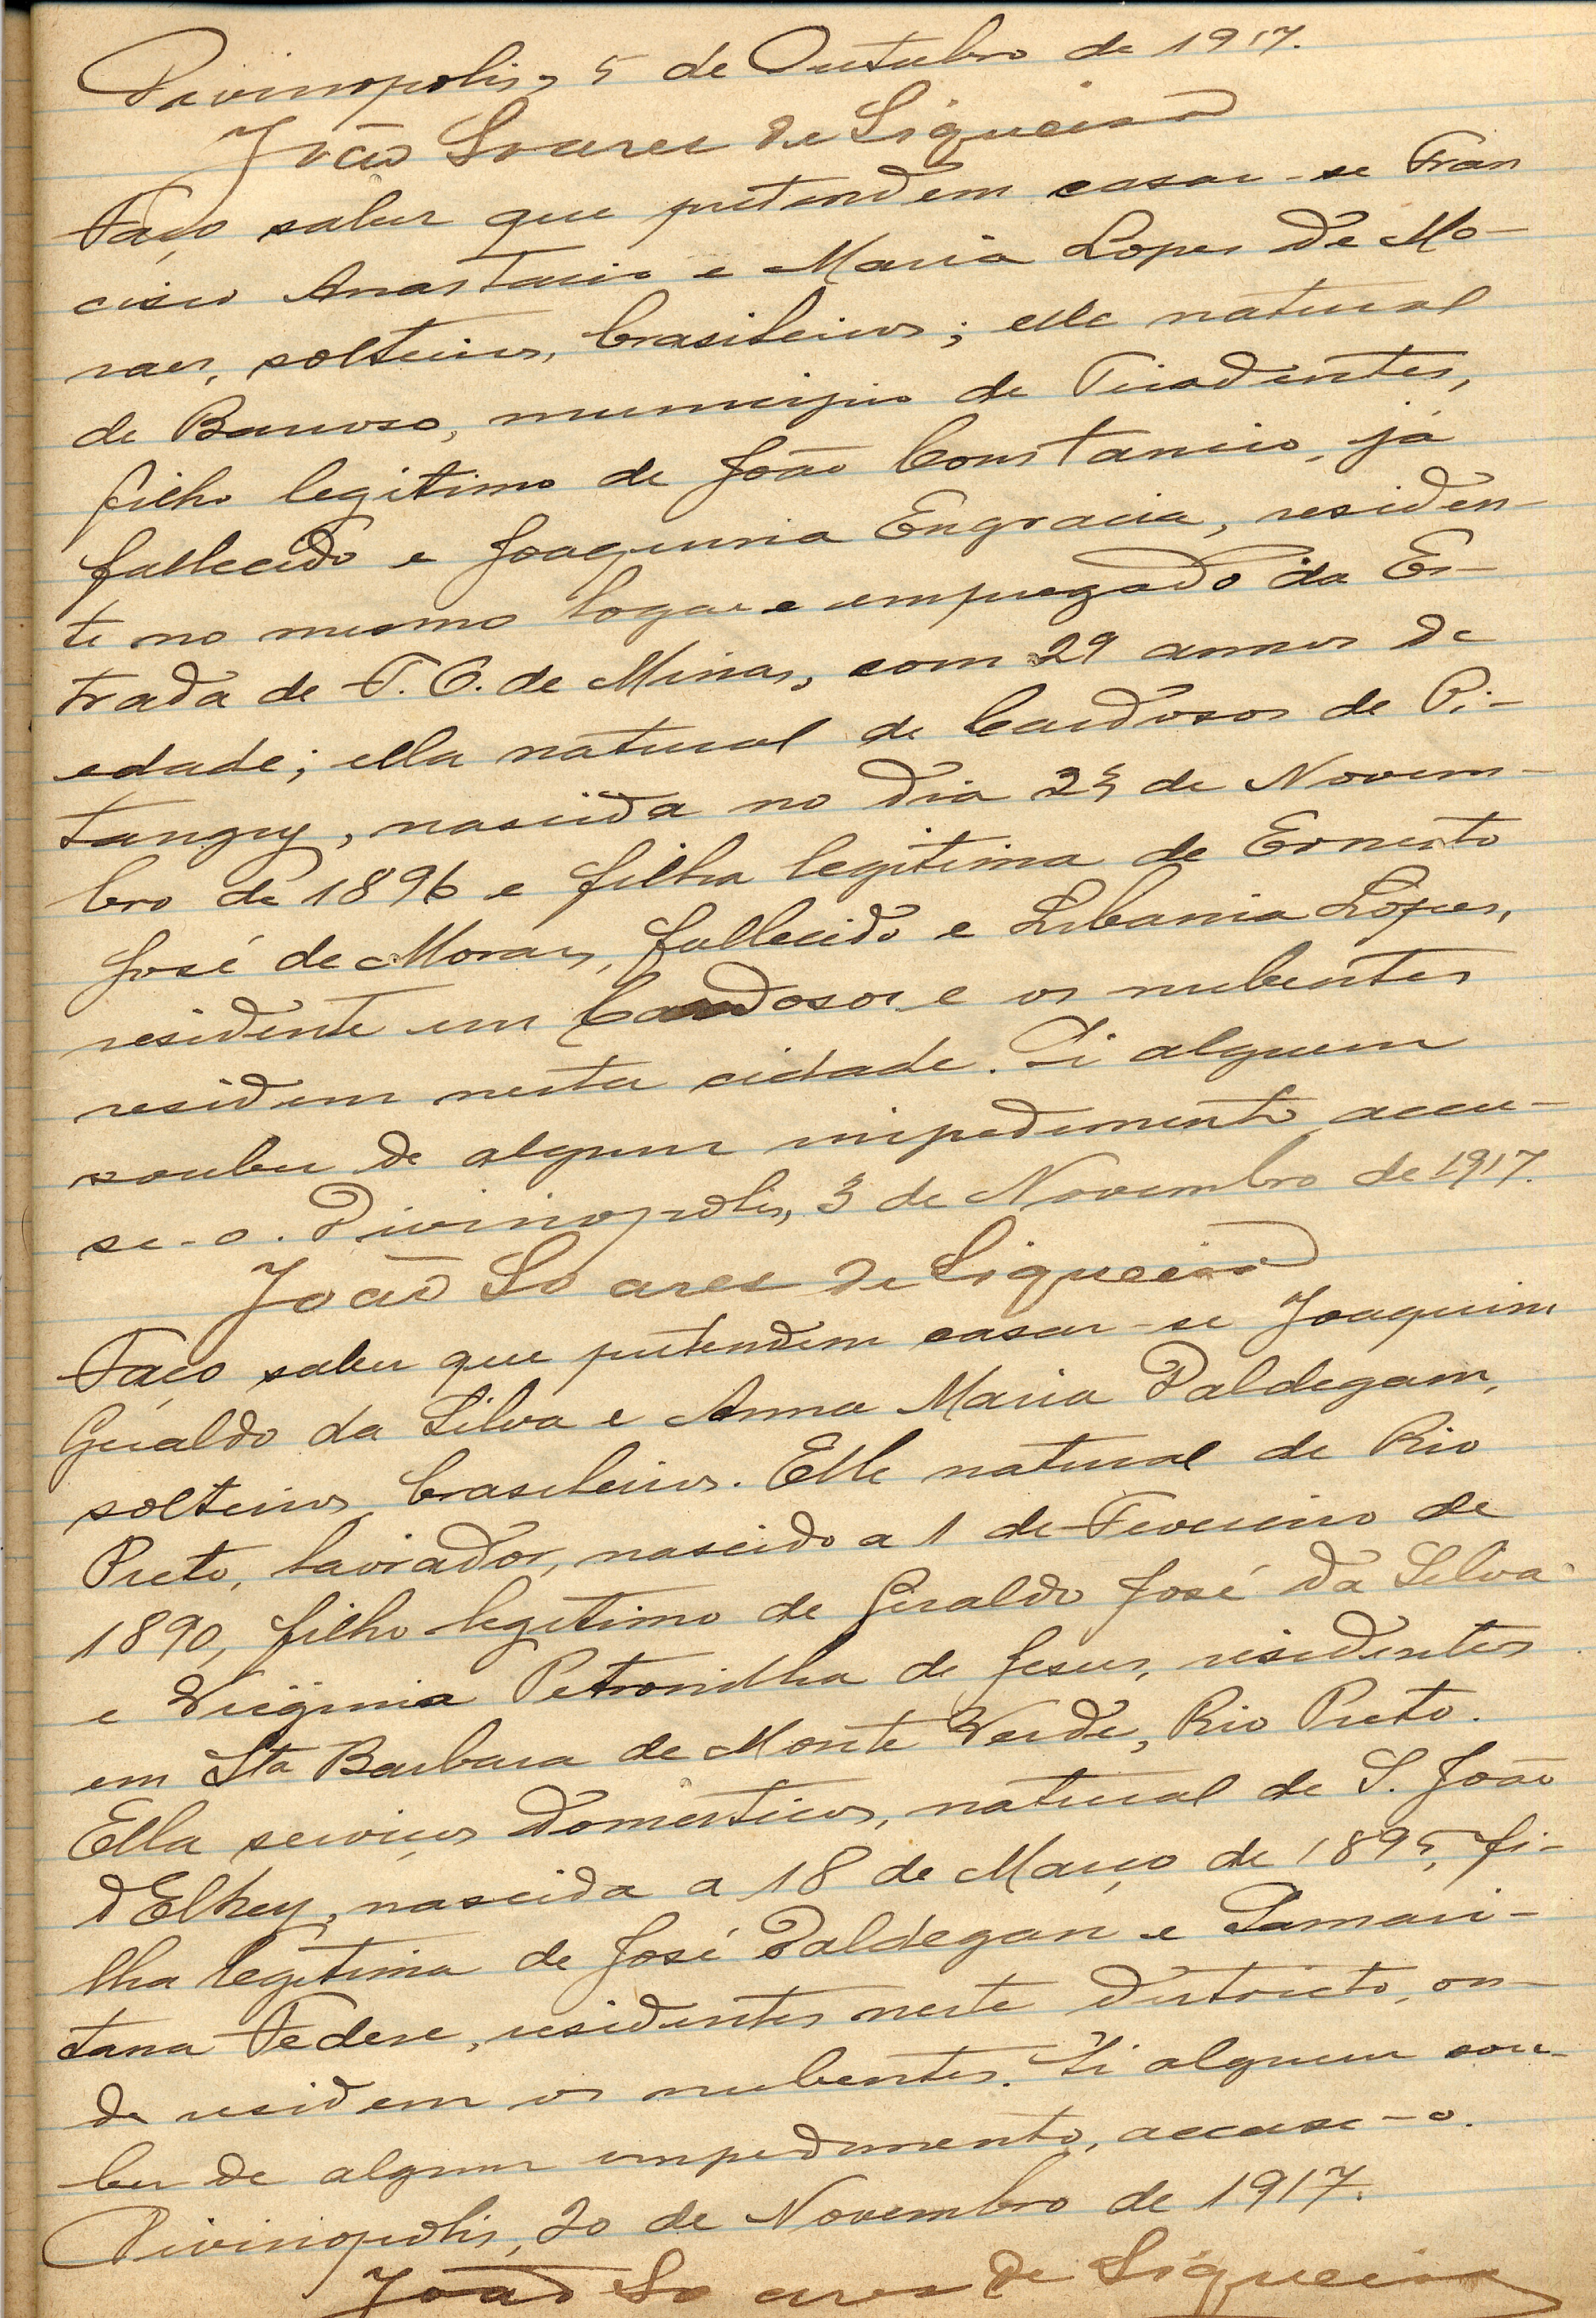 Divinopolis, 5 de Outubro de 1917.
João Soares de Siqueira
Faço saber que pretendem casar-se Fran
cisco Anastacio e Maria Lopes de Mo-
raes, solteiros, brasileiros; elle natural
de Barroso, municipio de Tiradentes,
filho legitimo de João Constancio, já
fallecido e Joaquina Engracia, residen-
te no mesmo logar e empregado da Es-
trada de F. O. de Minas, com 29 annos de
edade; ella natural de Cardosos de Pi-
tanguy, nascida no dia 25 de Novem-
bro de 1896 e filha legitima de Ernesto
José de Moraes, fallecido e Libania Lopes,
residente em Cardosos e os nubentes
residem nesta cidade. Si alguem
souber de algum impedimento accu-
se-o. Divinopolis, 3 de Novembro de 1917.
João Soares de Siqueira
Faço saber que pretendem casar-se Joaquim
Geraldo da Silva e Anna Maria Paldegam,
solteiros, brasileiros. Elle natural de Rio
Preto, lavrador, nascido a 1 de Fevereiro de
1890, filho legitimo de Geraldo José da Silva
e Virginia Petronilha de Jesus, residentes
em Sta Barbara de Monte Verde, Rio Preto.
Ella serviços domesticos, natural de S. João
d'ElRey, nascida a 18 de Março de 1895, fi-
lha legitima de José Paldegan e Samari-
tana Federe, residentes neste districto, on-
de residem os nubentes. Si alguem sou-
ber de algum impedimento, accuse-o.
Divinopolis, 20 de Novembro de 1917.
João Soares de Siqueira